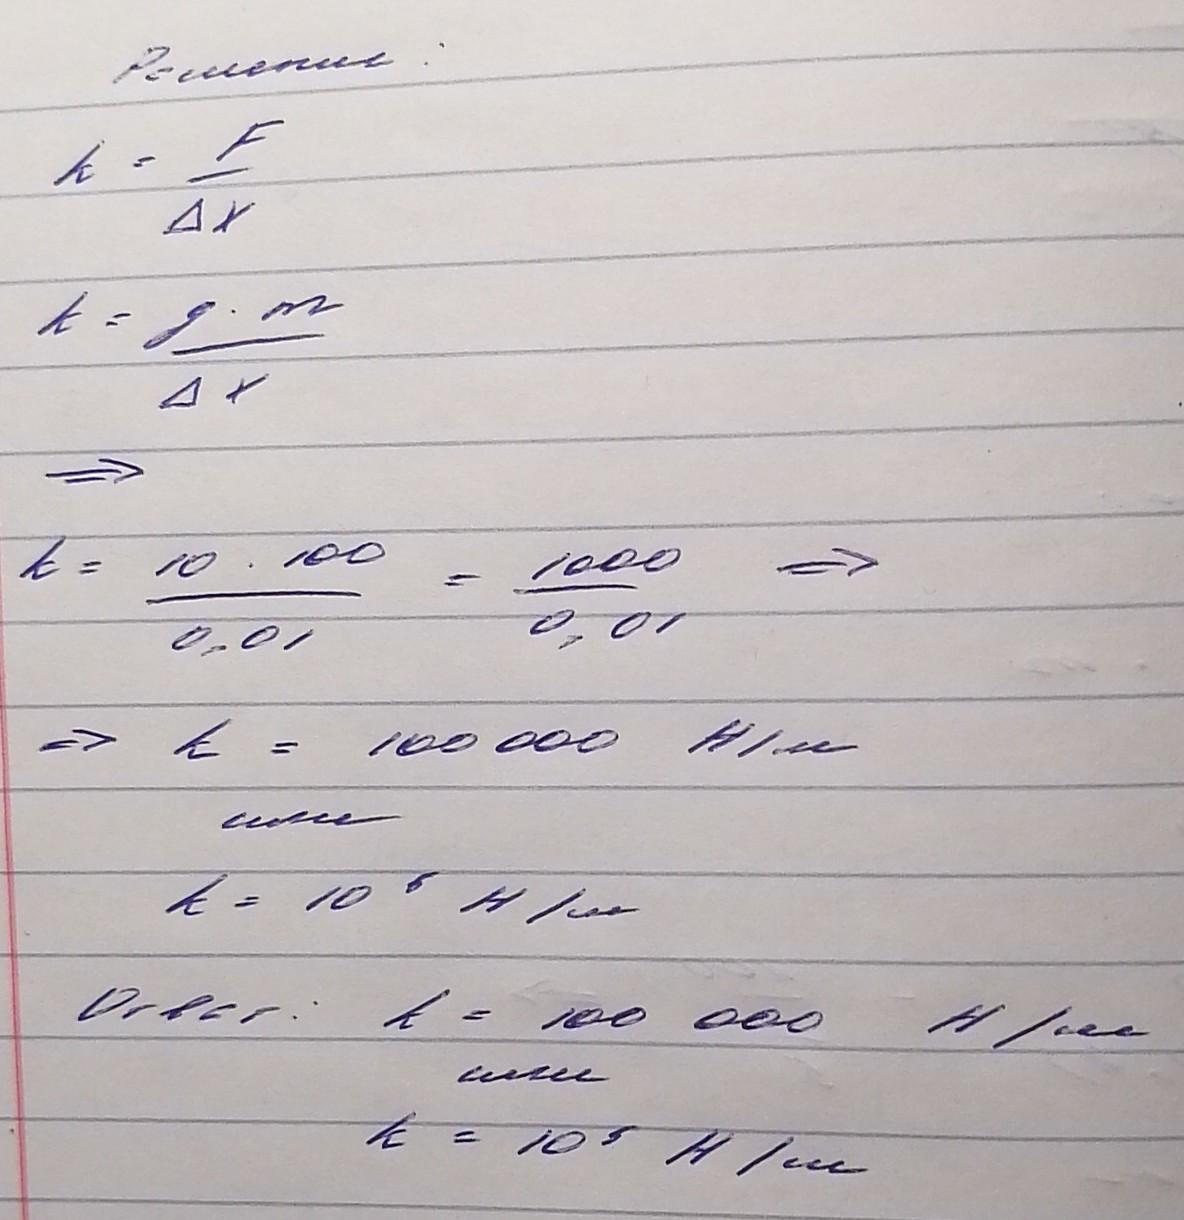 Решение:
k = F / Δx
k = g · m / Δx
⇒
k = 10 · 100 / 0,01 = 1000 / 0,01 ⇒
⇒ k = 100 000 Н/м
или
k = 10⁵ Н/м
Ответ: k = 100 000 Н/м
или
k = 10⁵ Н/м